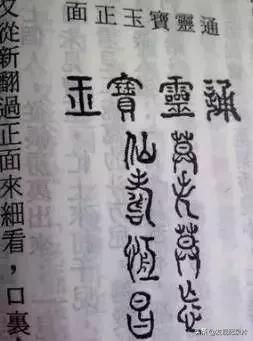 通靈寶玉正面
通靈寶玉
莫失莫忘
仙壽恆昌
又從新翻過正面來細看，口裏
头条 @发现纪录片